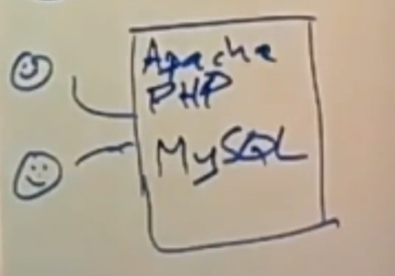 Apache
PHP
MySQL